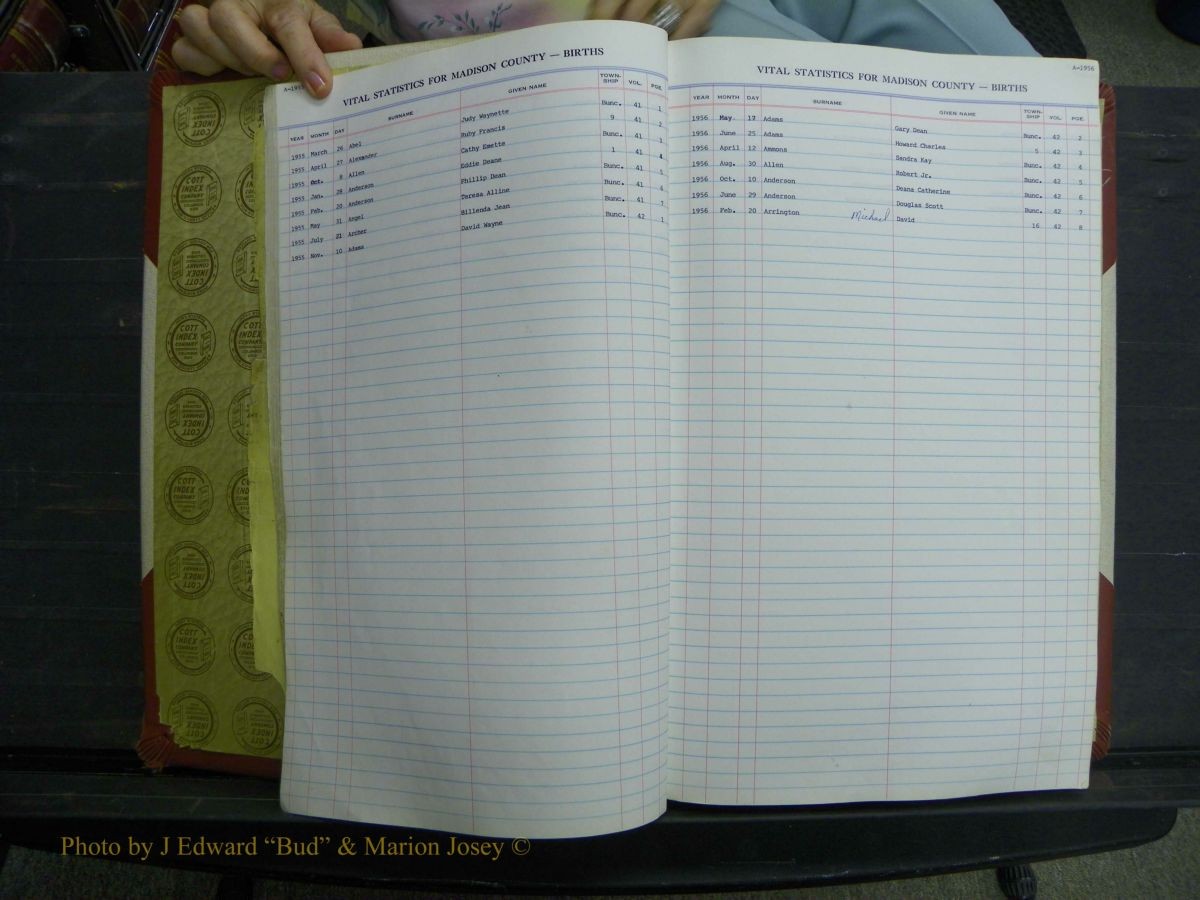 A-1955
VITAL STATISTICS FOR MADISON COUNTY — BIRTHS
YEAR MONTH DAY SURNAME GIVEN NAME TOWN-SHIP VOL. PGE.
1955 March 26 Abel Judy Waynette Bunc. 41 1
1955 April 27 Alexander Ruby Francis 9 41 2
1955 Oct. 8 Allen Cathy Emette Bunc. 41 3
1955 Jan. 28 Anderson Eddie Deane 1 41 4
1955 Feb. 20 Anderson Phillip Dean Bunc. 41 5
1955 May 31 Angel Teresa Alline Bunc. 41 6
1955 July 21 Archer Billenda Jean Bunc. 41 7
1955 Nov. 10 Adams David Wayne Bunc. 42 1
A-1956
VITAL STATISTICS FOR MADISON COUNTY — BIRTHS
YEAR MONTH DAY SURNAME GIVEN NAME TOWN-SHIP VOL. PGE.
1956 May Adams Gary Dean Bunc. 42 2
1956 June 25 Adams Howard Charles 5 42 3
1956 April 12 Ammons Sandra Kay Bunc. 42 4
1956 Aug. 30 Allen Robert Jr. Bunc. 42 5
1956 Oct. 10 Anderson Deana Catherine Bunc. 42 6
1956 June 29 Anderson Douglas Scott Bunc. 42 7
1956 Feb. 20 Arrington Michael David 16 42 8
COTT INDEX COMPANY
Photo by J Edward “Bud” & Marion Josey ©